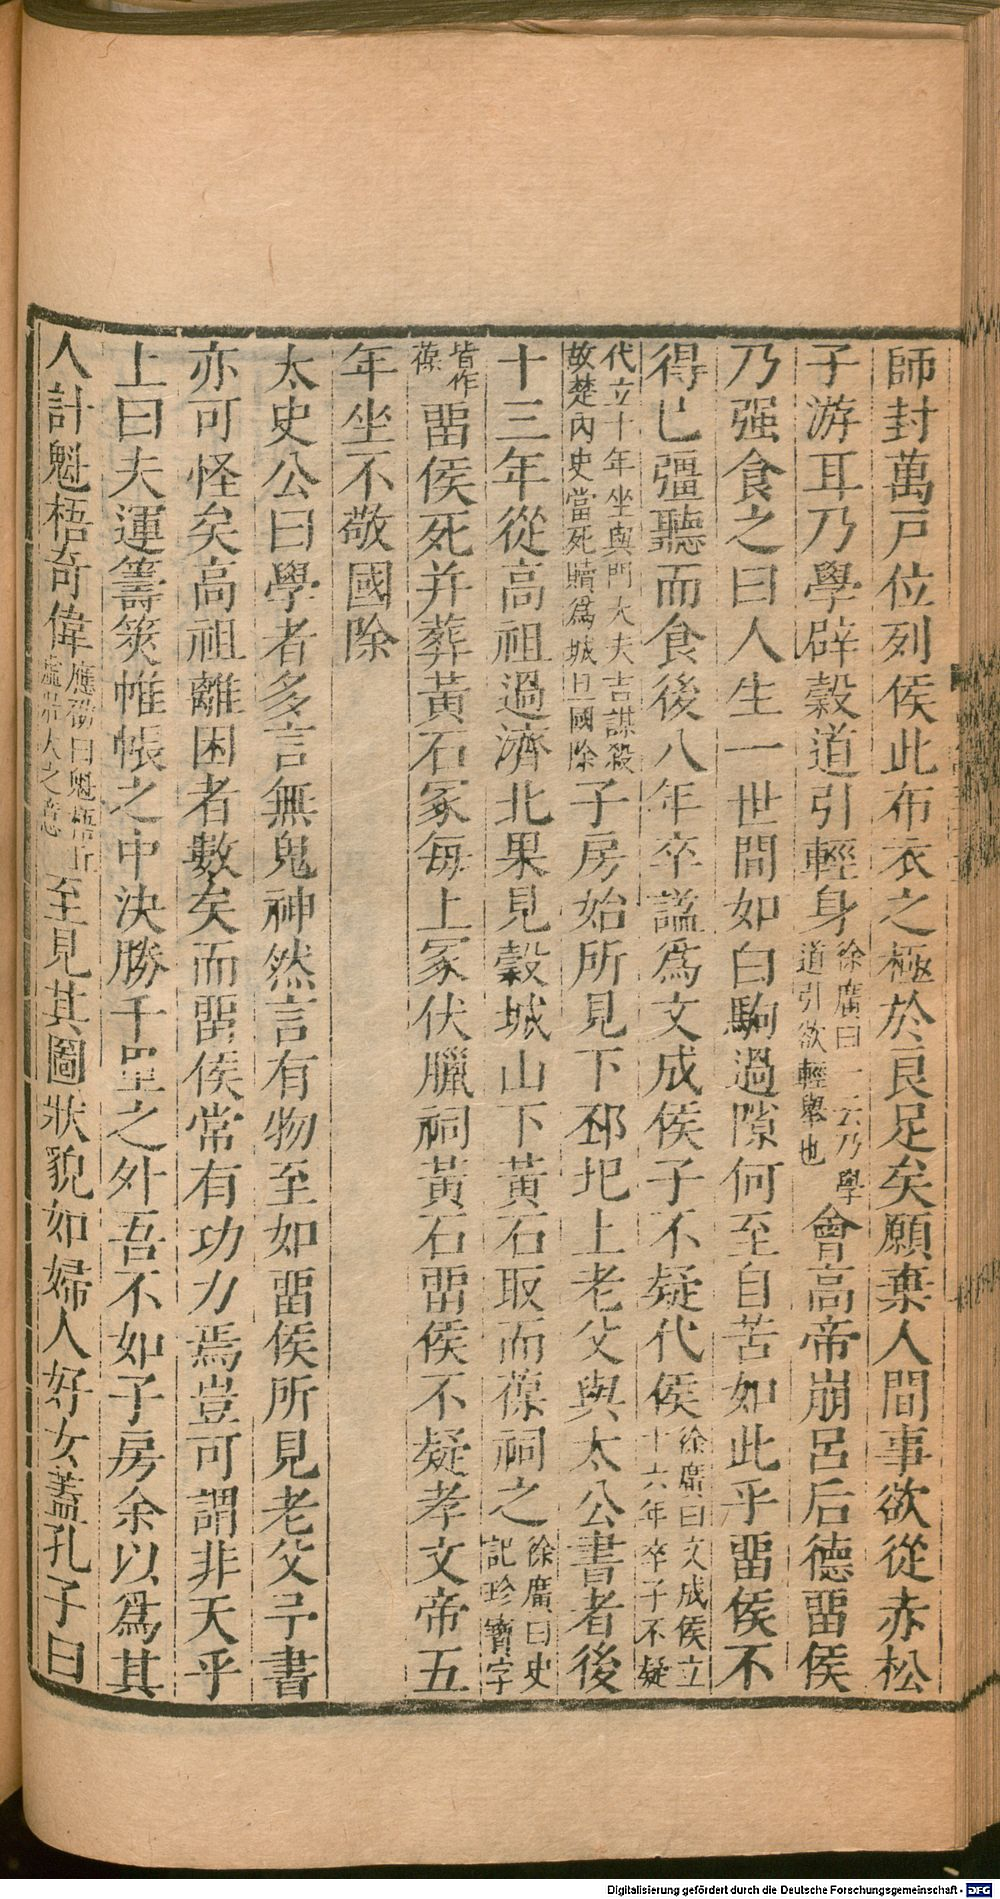 師封萬戸位列侯此布衣之極於良足矣願棄人間事欲從赤松
子游耳乃學辟穀道引輕身徐廣曰一云乃學道引欲輕舉也會高帝崩呂后德畱侯
乃强食之曰人生一世間如白駒過隙何至自苦如此乎畱侯不
得已彊聽而食後八年卒謚爲文成侯子不疑代侯徐廣曰文成侯立十六年卒子不疑
代立十年坐與門大夫吉謀殺故楚内史當死贖爲城旦國除子房始所見下邳圯上老父與太公書者後
十三年從高祖過濟北果見穀城山下黃石取而葆祠之徐廣曰史記珍寶字
皆作葆畱侯死并葬黃石冢每上冢伏臘祠黃石畱侯不疑孝文帝五
年坐不敬國除
太史公曰學者多言無鬼神然言有物至如畱侯所見老父予書
亦可怪矣高祖離困者數矣而畱侯常有功力焉豈可謂非天乎
上曰夫運籌筴帷帳之中決勝千里之外吾不如子房余以爲其
人計魁梧奇偉應劭曰魁梧丘虛壯大之意至見其圖狀貌如婦人好女蓋孔子曰
Digitalisierung gefördert durch die Deutsche Forschungsgemeinschaft - DFG